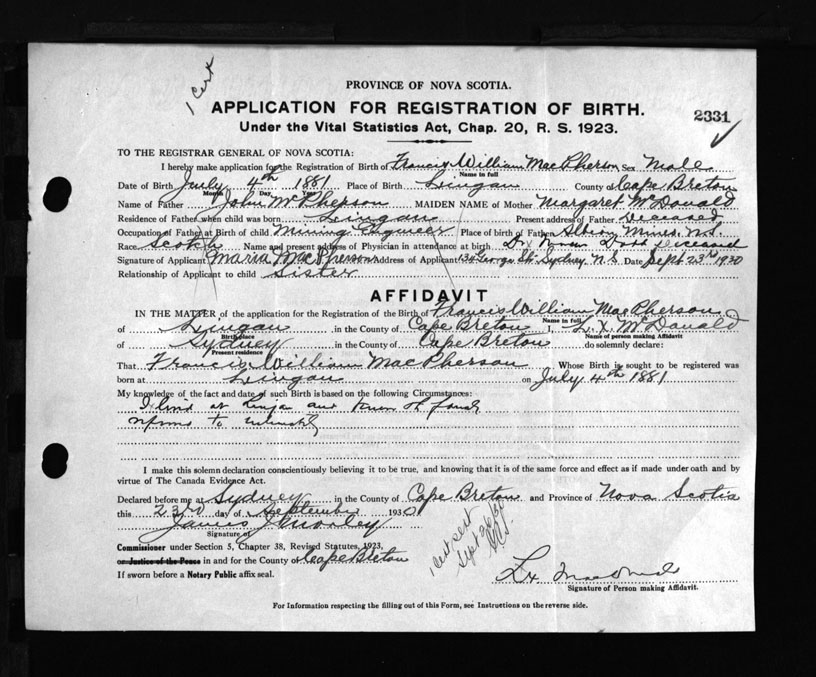 1 Cert
PROVINCE OF NOVA SCOTIA.
APPLICATION FOR REGISTRATION OF BIRTH.
2331
Under the Vital Statistics Act, Chap. 20, R. S. 1923.
TO THE REGISTRAR GENERAL OF NOVA SCOTIA:
I hereby make application for the Registration of Birth of Francis William MacPherson Sex Male
Name in full
Date of Birth July 4th 1881 Place of Birth Lingan County of Cape Breton
Month Day Year
Name of Father John McPherson MAIDEN NAME of Mother Margaret McDonald
Residence of Father when child was born Lingan Present address of Father deceased
Occupation of Father at Birth of child Mining Engineer Place of birth of Father Albion Mines, N.S.
Race Scotch Name and present address of Physician in attendance at birth Dr Dodd deceased
Signature of Applicant Maria MacPherson Address of Applicant 134 George St. Sydney N.S. Date Sept 23rd 1930
Relationship of Applicant to child Sister
AFFIDAVIT
IN THE MATTER of the application for the Registration of the Birth of Francis William MacPherson
Name in full
of Lingan in the County of Cape Breton I, L. X. McDonald
Birthplace Name of person making Affidavit
of Sydney in the County of Cape Breton do solemnly declare:
Present residence
That Francis William MacPherson Whose Birth is sought to be registered was
born at Lingan on July 4th 1881
My knowledge of the fact and date of such Birth is based on the following Circumstances:
I lived at Lingan and knew the family
to
I make this solemn declaration conscientiously believing it to be true, and knowing that it is of the same force and effect as if made under oath and by
virtue of The Canada Evidence Act.
Declared before me at Sydney in the County of Cape Breton and Province of Nova Scotia
this 23rd day of September 1930
James J
Signature of
Commissioner under Section 5, Chapter 38, Revised Statutes, 1923,
or Justice of the Peace in and for the County of Cape Breton
If sworn before a Notary Public affix seal.
1 Cert sent
Sept 26/30
Lx MacDonald
Signature of Person making Affidavit.
For Information respecting the filling out of this Form, see Instructions on the reverse side.